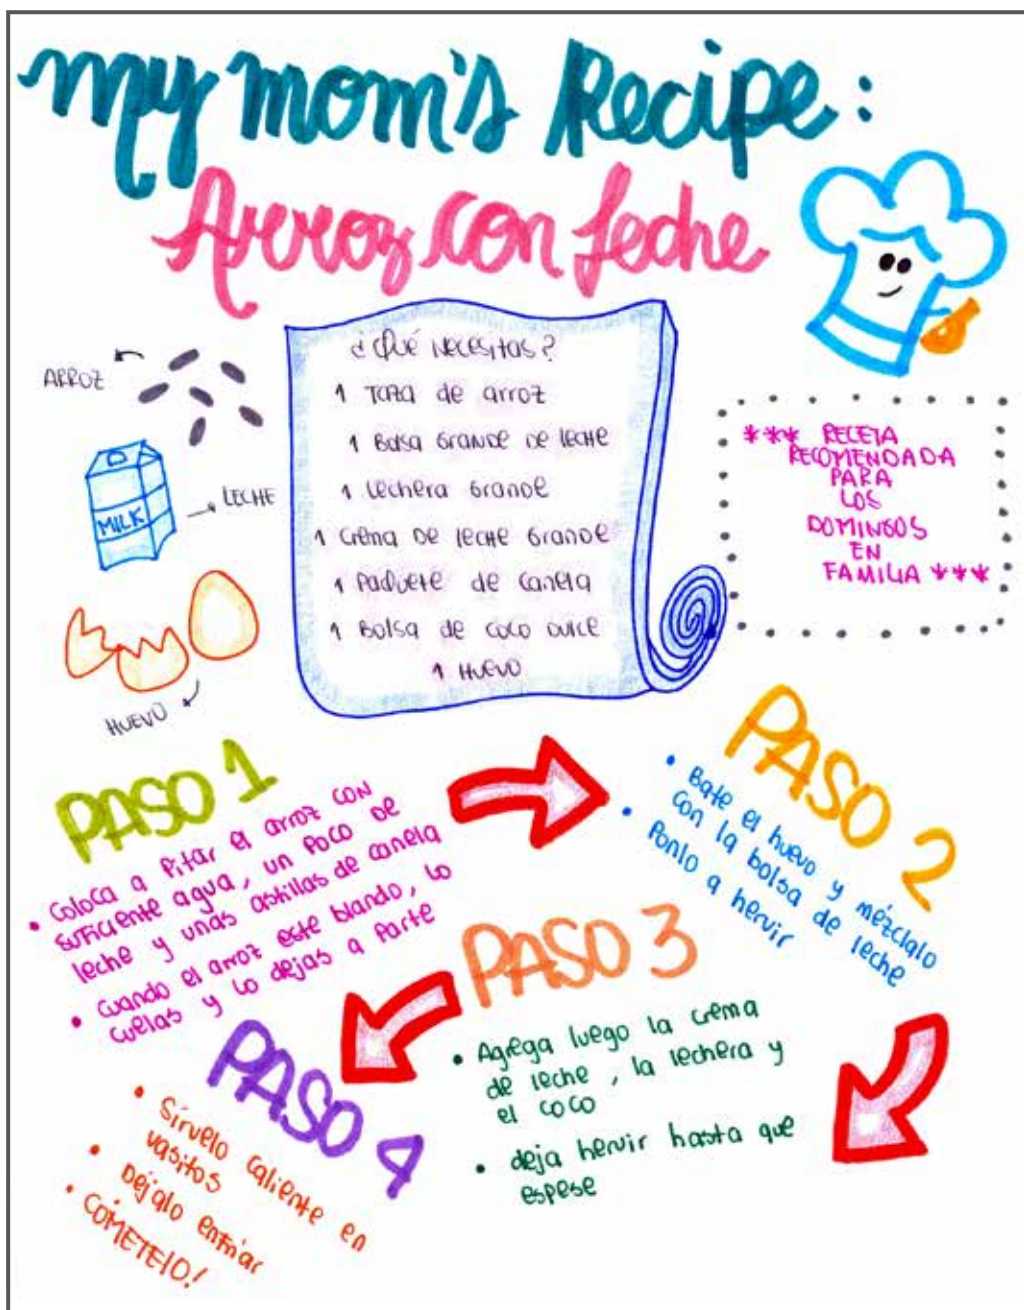 my mom's Recipe:
Arroz con Leche
¿Qué necesitas?
1 Taza de arroz
1 Bolsa grande de leche
1 lechera grande
1 crema de leche grande
1 paquete de canela
1 Bolsa de coco dulce
1 Huevo
ARROZ
MILK
LECHE
HUEVO
*** RECETA
RECOMENDADA
PARA
LOS
DOMINGOS
EN
FAMILIA ***
PASO 1
• Coloca a Pitar el arroz con
suficiente agua, un poco de
leche y unas astillas de canela
• cuando el arroz este blando, lo
cuelas y lo dejas a parte
PASO 2
• Bate el huevo y mézclalo
con la bolsa de leche
• Ponlo a hervir
PASO 3
• Agrega luego la crema
de leche, la lechera y
el coco
• deja hervir hasta que
espese
PASO 4
• Sírvelo caliente en
vasitos
• Dejalo enfriar
• CÓMETELO!